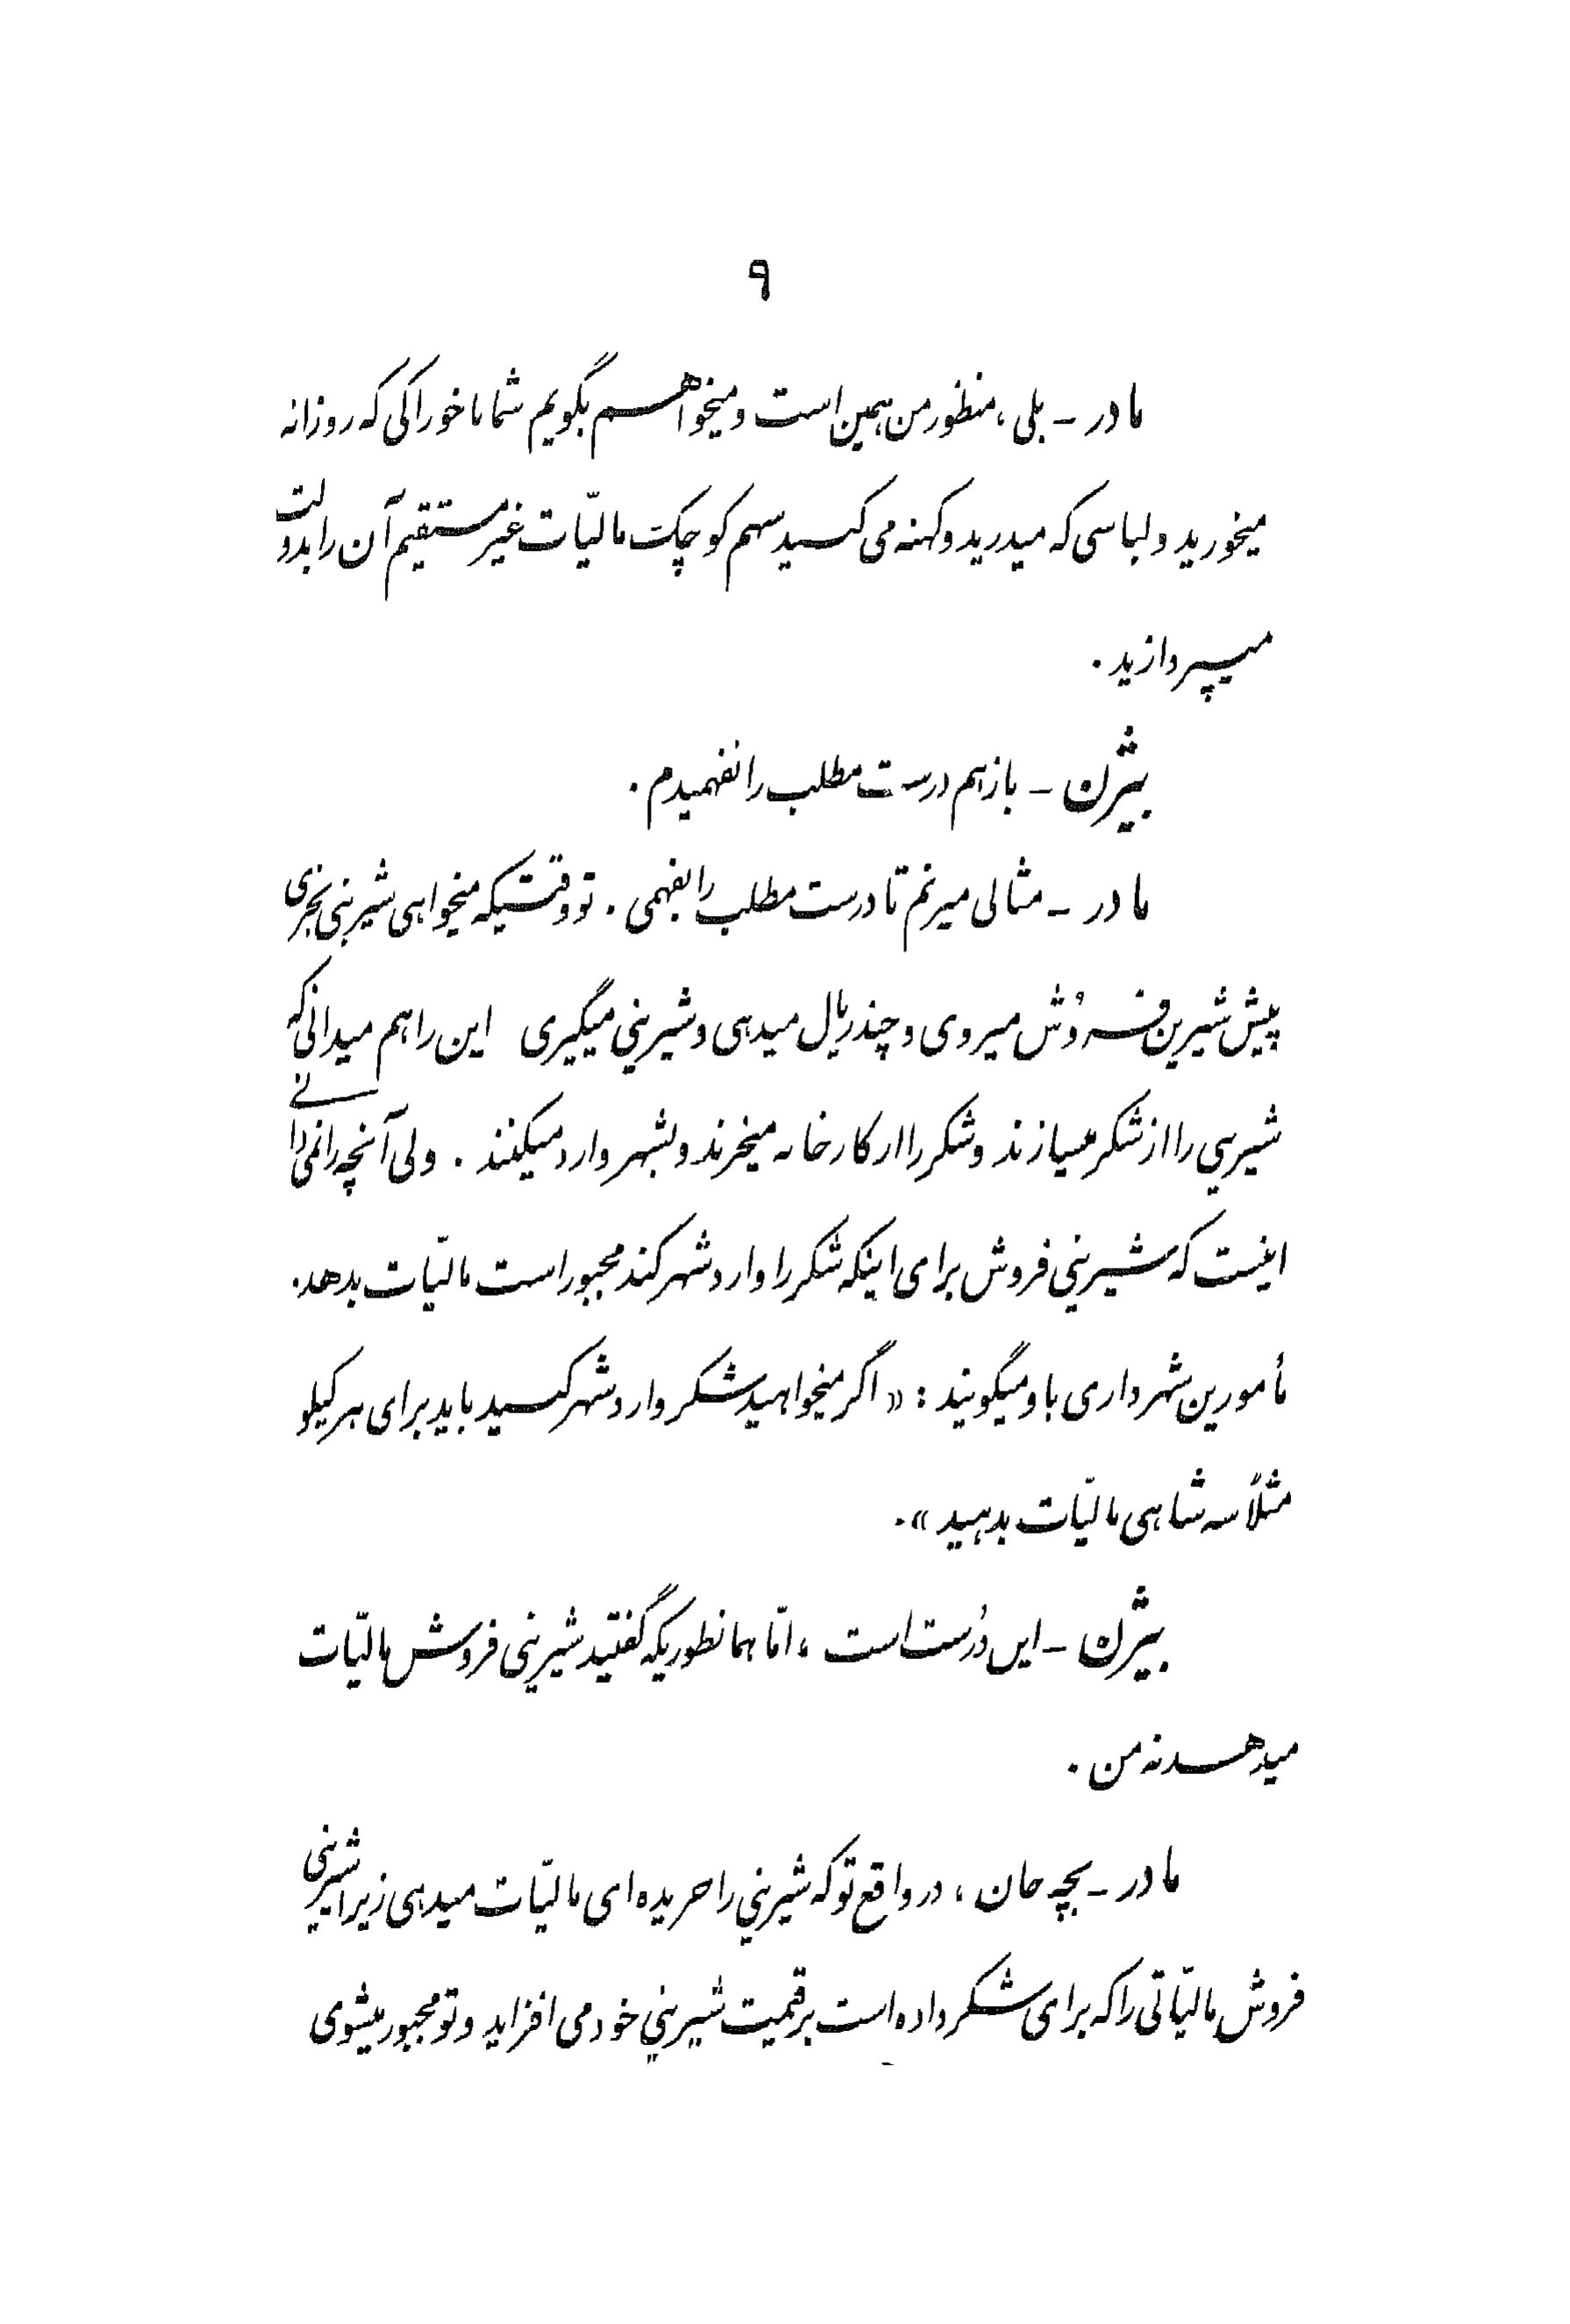 ۹
مادر ـ بلی ، منظور من همین است و میخواهم بگویم شما با خوراکی که روزانه
میخورید و لباسی که میدرید و کهنه می کنید سهم کوچک مالیّات غیر مستقیم آن را بدولت
میپردازید .
بیژن ـ باز هم درست مطلب را نفهمیدم .
مادر ـ مثالی میزنم تا درست مطلب را بفهمی . تو وقتیکه میخواهی شیرینی بخری
پیش شیرین فروش میروی و چند ریال میدهی و شیرینی میگیری این را هم میدانی که
شیرینی را از شکر میسازند و شکر را از کارخانه میخرند و بشهر وارد میکنند . ولی آنچه را نمی دانی
اینست که شیرینی فروش برای اینکه شکر را وارد شهر کند مجبور است مالیّات بدهد .
مأمورین شهرداری باو میگویند : « اگر میخواهید شکر وارد شهر کنید باید برای هر کیلو
مثلاً سه شاهی مالیّات بدهید » .
بیژن ـ این دُرست است ، امّا همانطوریکه گفتید شیرینی فروش مالیّات
میدهد نه من .
مادر ـ بچه جان ، در واقع تو که شیرینی را خریده ای مالیّات میدهی زیرا شیرینی
فروش مالیّاتی را که برای شکر داده است بر قیمت شیرینی خود می افزاید و تو مجبور میشوی